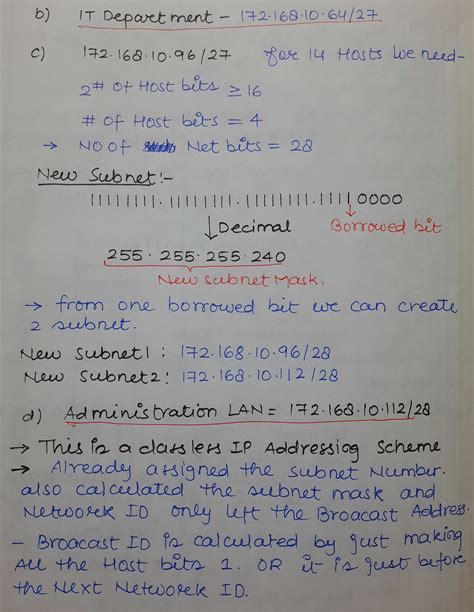 b) IT Department - 172.168.10.64/27
c) 172.168.10.96/27 for 14 Hosts we need-
2^# of Host bits ≥ 16
# of Host bits = 4
→ No of Net bits = 28
New Subnet:-
11111111.11111111.11111111.11110000
↓ Decimal Borrowed bit
255.255.255.240
New subnet Mask.
→ from one borrowed bit we can create
2 subnet.
New Subnet1: 172.168.10.96/28
New Subnet2: 172.168.10.112/28
d) Administration LAN = 172.168.10.112/28
→ This is a classless IP Addressing Scheme
→ Already assigned the subnet Number.
also calculated the subnet mask and
Network ID only left the Broacast Address.
- Broacast ID is calculated by just making
All the Host bits 1. OR it is just before
the Next Network ID.